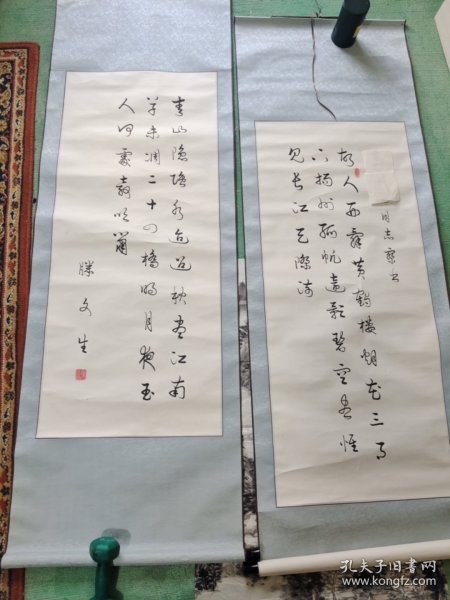 同志
故人西辞黄鹤楼烟花三月
下揚州孤帆遠影碧空尽惟
见长江天際流
青山隐隐水迢迢秋尽江南
草未凋二十四橋明月夜玉
人何處教吹簫
滕文生
孔夫子旧书网
www.kongfz.com